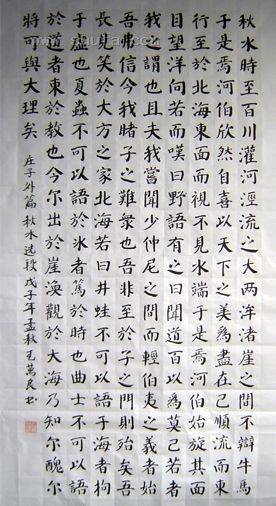 秋水時至百川灌河涇流之大兩涘渚崖之間不辯牛馬
于是焉河伯欣然自喜以天下之美為盡在己順流而東
行至於北海東面而視不見水端于是焉河伯始旋其面
目望洋向若而嘆曰野語有之曰聞道百以為莫己若者
我謂也且夫我嘗聞少仲尼之聞而輕伯夷之義者始
吾弗信今我睹子之難窮也吾非至於子之門則殆矣吾
長見笑於大方之家北海若曰井蛙不可以語于海者拘
于虛也夏蟲不可以語於冰者篤於時也曲士不可以語
於道者束於教也今尔出於崖涘觀於大海乃知尔醜尔
將可與大理矣
庄子外篇秋水選段戊子年孟秋